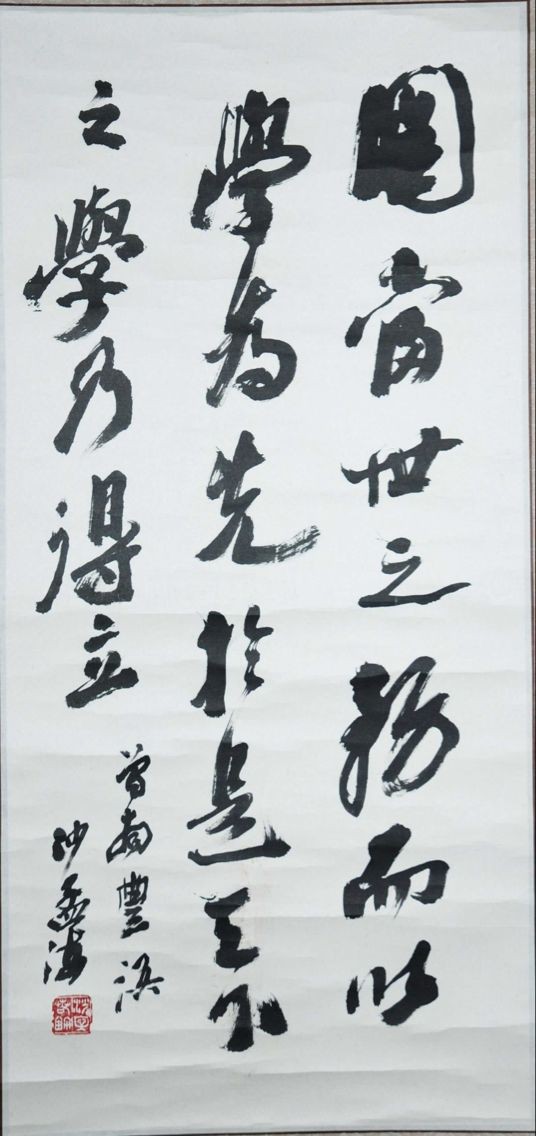 圖當世之務而以
學為先於是天下
之學乃得立
曾南豐語
沙孟海